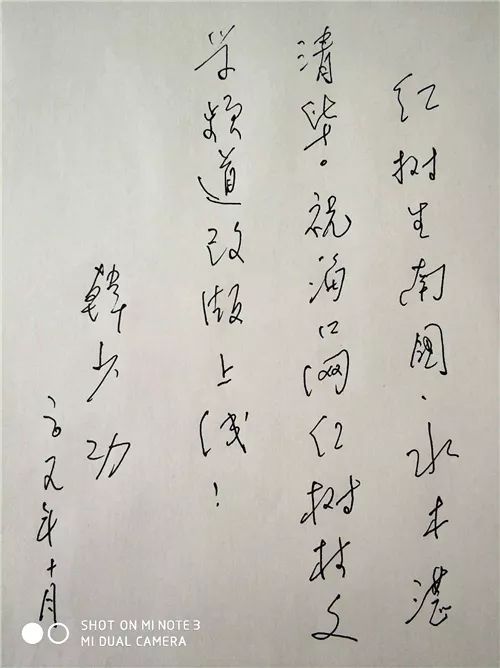 红树生南国,水木湛
清华。祝海口网红树林文
学频道改版上线!
韩少功
年十月
SHOT ON MI NOTE 3
MI DUAL CAMERA